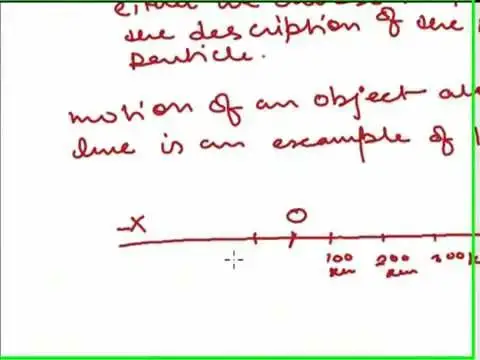 the description of the
particle.
motion of an object al
line is an example of
-X
O
100 km 200 km 300 k